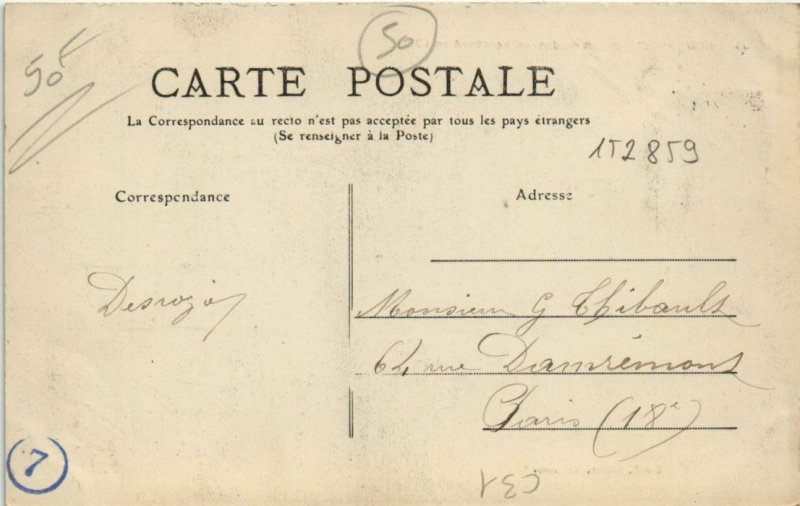 50
50 F
CARTE POSTALE
La Correspondance au recto n'est pas acceptée par tous les pays étrangers
(Se renseigner à la Poste)
152859
Correspondance
Adresse
Monsieur G Thibault
64 rue Damrémont
Paris (18e)
7
C31